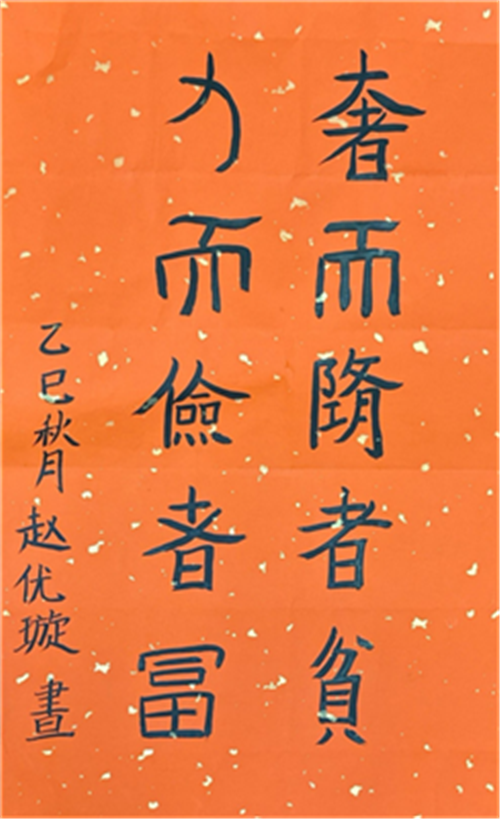 奢而隋者貧
力而儉者冨
乙巳秋月赵优璇晝